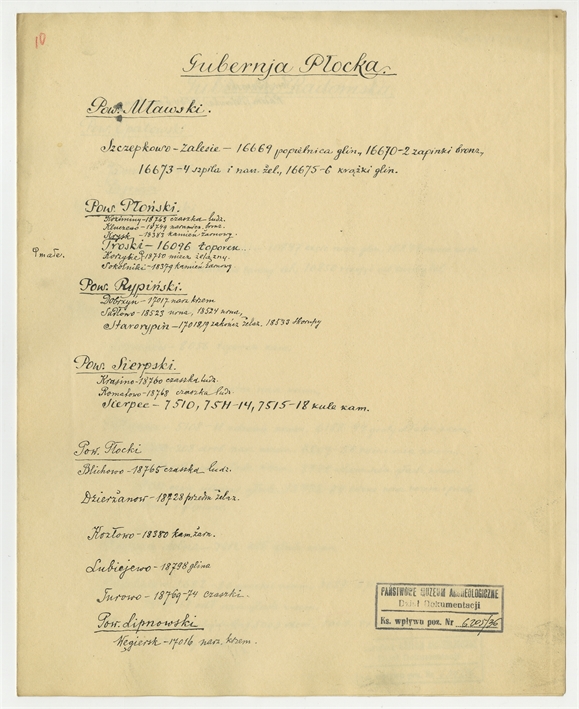 10
Gubernja Płocka.
Pow. Mławski.
Szczepkowo-Zalesie - 16669 popielnica glin., 16670-2 zapinki bronz.,
16673-4 szpila i narz. żel., 16675-6 krążki glin.
Pow. Płoński.
Koziminy - 18763 czaszka ludz.
18799 bronz.
18382 kamień żarnowy.
Troski - 16096 toporek
18750 miecz żelazny.
Sokolniki - 18379 kamień żarnowy
Pow. Rypiński.
Dobrzyń - 17017 narz. krzem
Sadłowo - 18523 18524
Starorypin - 17018/19 żelaz. 18533 skorupy
Pow. Sierpski.
Krasino - 18760 czaszka ludz.
Romatowo - 18768 czaszka ludz.
Sierpec - 7510, 7511-14, 7515-18 kule kam.
Pow. Płocki
Blichowo - 18765 czaszka ludz.
Dzierżanow - 18728 przedm. żelaz.
Kozłowo - 18380 kam. żarn.
Lubiejewo - 18798 glina
Turowo - 18769-74 czaszki.
Pow. Lipnowski
Węgiersk - 17016 narz. krzem.
PAŃSTWOWE MUZEUM ARCHEOLOGICZNE
Dział Dokumentacji
Ks. wpływu poz. Nr 6205/36